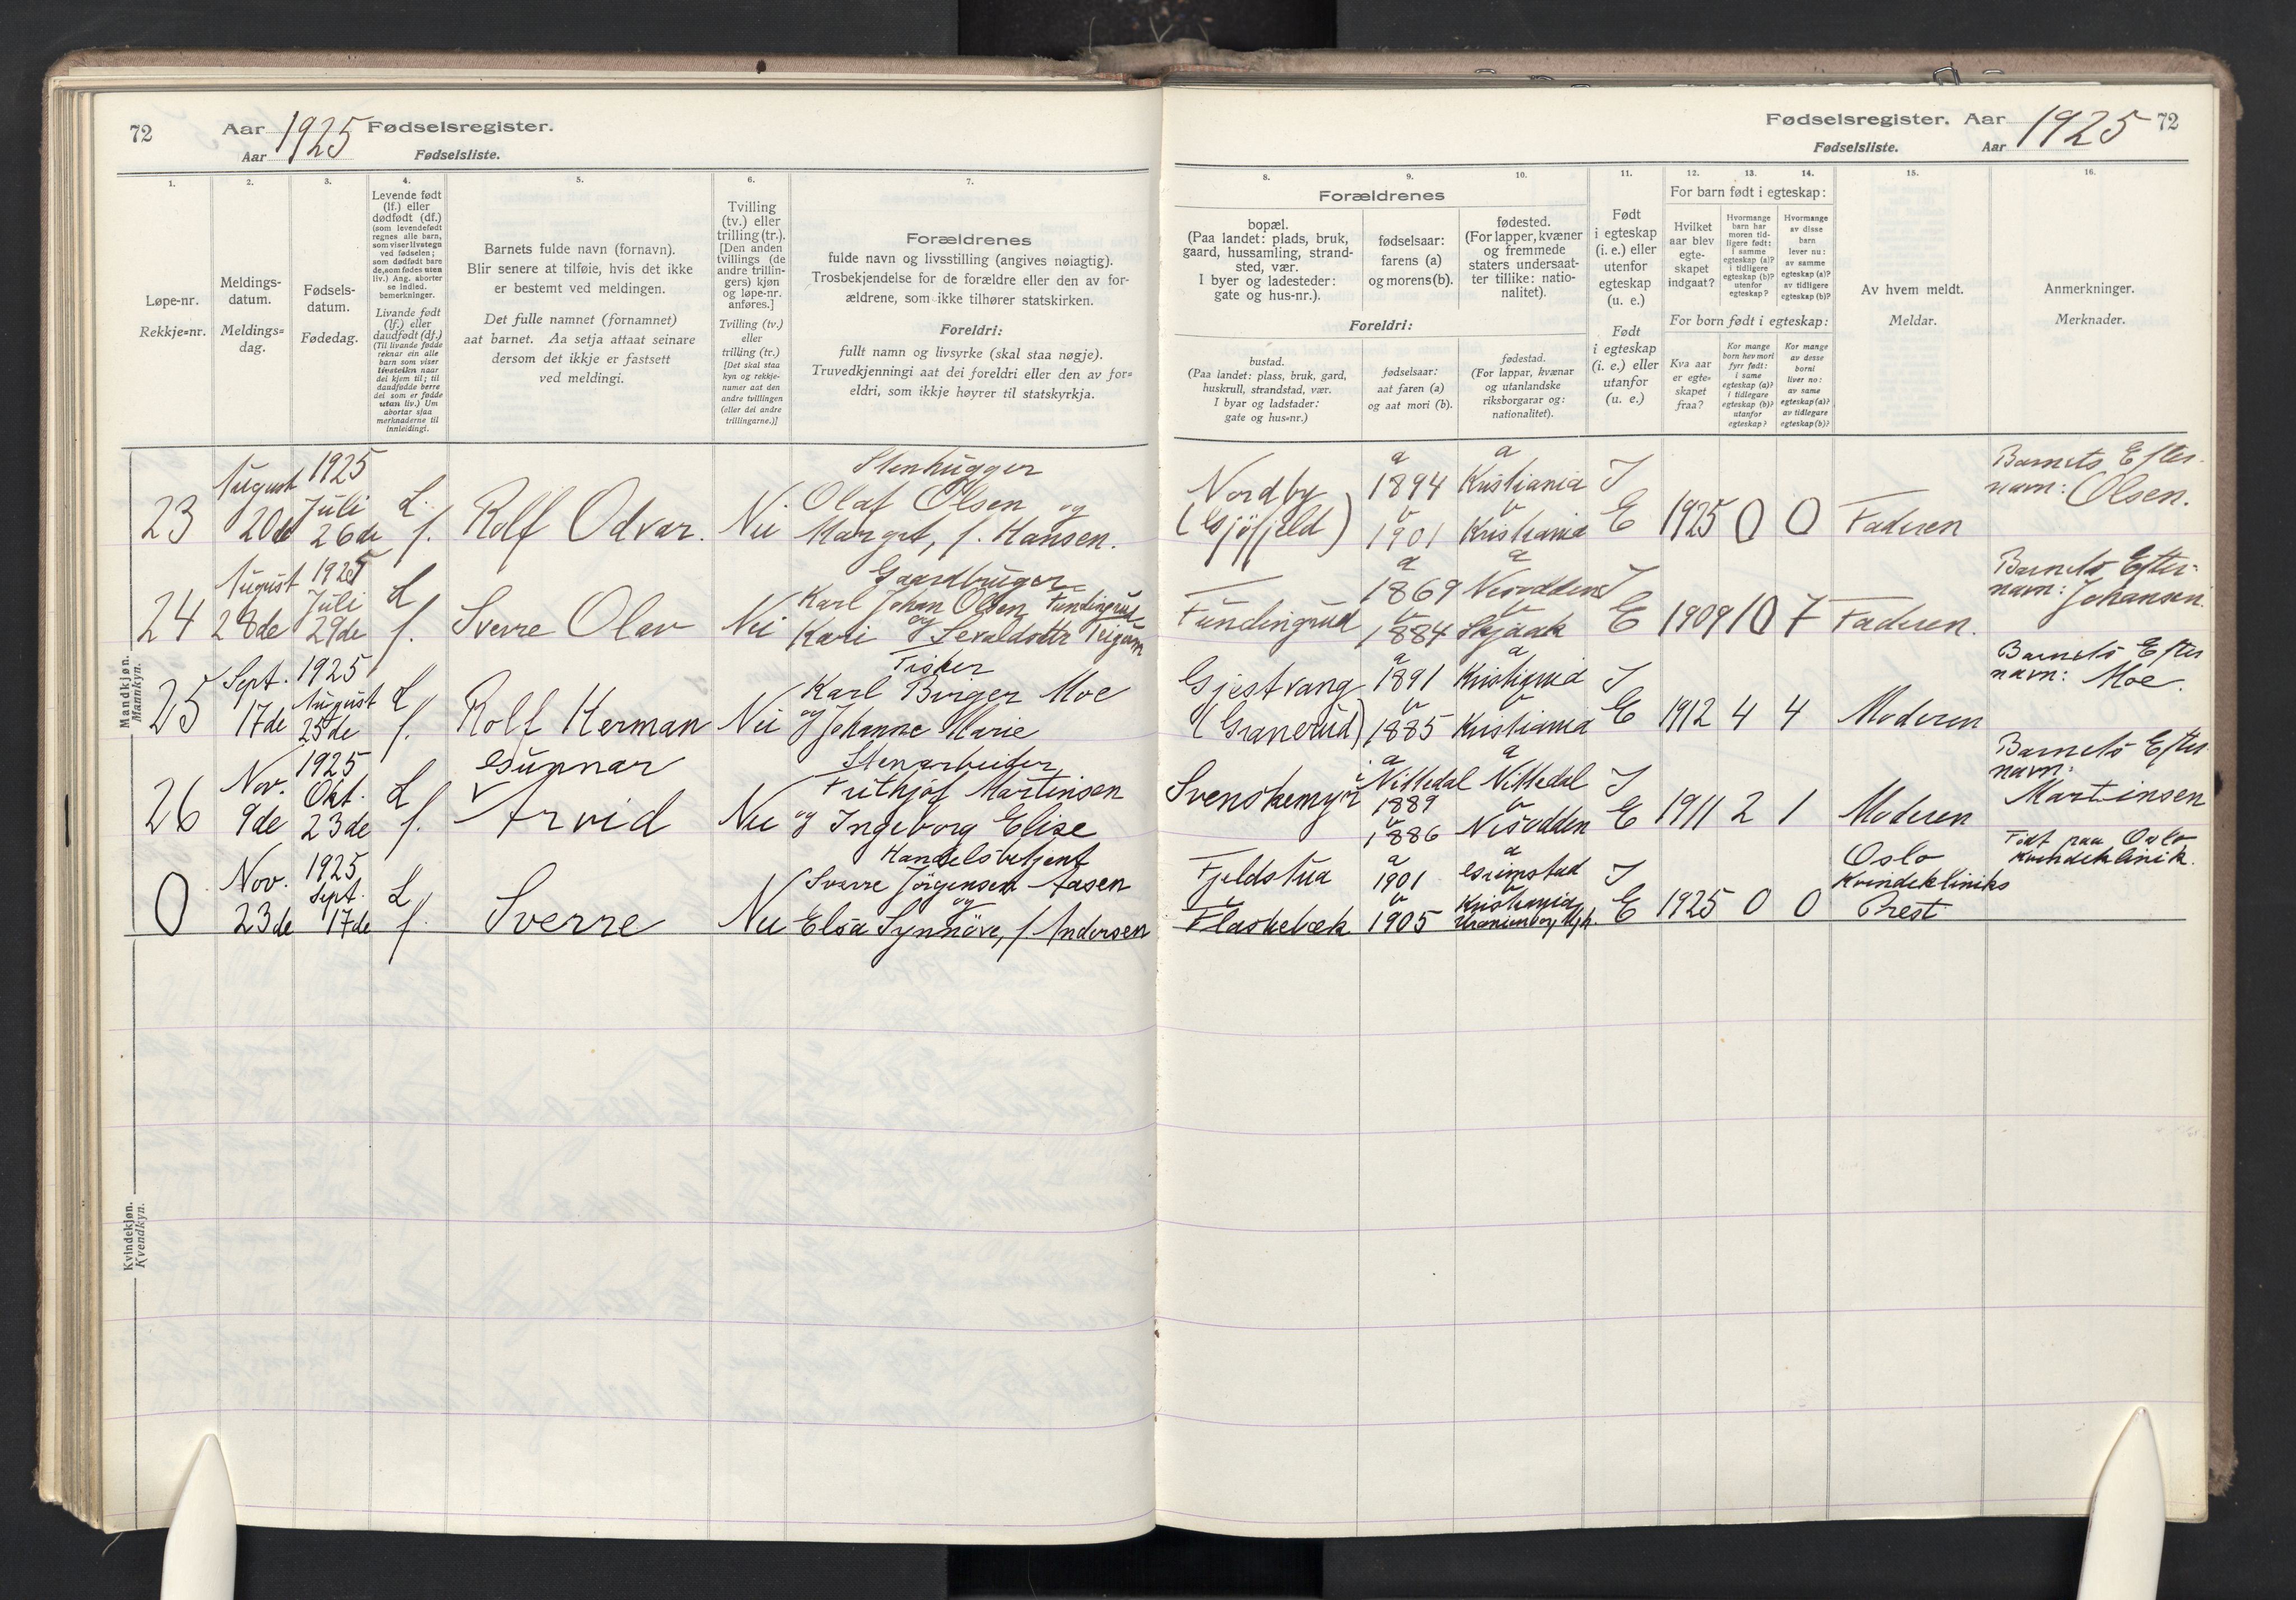 72 Aar 1925 Fødselsregister.
Aar Fødselsliste.
1. 2. 3. 4. 5. 6. 7.
Løpe-nr.
Rekkje=nr.
Meldings-
datum.
Meldings=
dag.
Fødsels-
datum.
Fødedag.
Levende født
(lf.) eller
dødfødt (df.)
(som levendefødt
regnes alle barn,
som viser livstegn
ved fødselen;
som dødfødt bare
de, som fødes uten
liv.) Ang. aborter
se indled.
bemerkninger.
Livande født
(lf.) eller
daudfødt (df.)
(Til livande fødde
reknar ein alle
barn som viser
livsteikn naar
dei kjem til; til
daudfødde berre
dei som er fødde
utan liv.) Um
abortar sjaa
merknaderne til
innleidingi.
Barnets fulde navn (fornavn).
Blir senere at tilføie, hvis det ikke
er bestemt ved meldingen.
Det fulle namnet (fornamnet)
aat barnet. Aa setja attaat seinare
dersom det ikkje er fastsett
ved meldingi.
Tvilling
(tv.) eller
trilling (tr.).
[Den anden
tvillings (de
andre trillin-
gers) kjøn
og løpe-nr.
anføres.]
Tvilling (tv.)
eller
trilling (tr.)
[Det skal staa
kyn og rekkje-
numer aat den
andre tvillingen
(eller dei andre
trillingarne.)]
Forældrenes
fulde navn og livsstilling (angives nøiagtig).
Trosbekjendelse for de forældre eller den av for-
ældrene, som ikke tilhører statskirken.
Foreldri:
fullt namn og livsyrke (skal staa nøgje).
Truvedkjenningi aat dei foreldri eller den av for=
eldri, som ikkje høyrer til statskyrkja.
Mandkjøn.
Mannkyn.
Kvindekjøn.
Kvendkyn.
23 August 20de 1925 Juli 26de L. f. Rolf Odvar. Nei
Stenhugger
Olaf Olsen og
Margit, f. Hansen.
24 August 28de 1925 Juli 29de L f. Sverre Olav Nei
Gaardbruger
Karl Johan Olsen Fundingrud
og
Kari Sevaldsdtr
25 Sept. 17de 1925 August 25de L f. Rolf Herman Nei
Fisker
Karl Birger Moe
og Johanne Marie
26 Nov. 9de 1925 Okt. 23de L f. Gunnar
Arvid Nei
Stenarbeider
Frithjof Martinsen
og Ingeborg Elise
0 Nov. 23de 1925 Sept. 17de L f. Sverre Nei
Handelsbetjent
Sverre Jörgensen Aasen
og
Elsa Synnöve, f. Andersen
Fødselsregister. Aar 1925 72
Fødselsliste. Aar
8. 9. 10. 11. 12. 13. 14. 15. 16.
Forældrenes
bopæl.
(Paa landet: plads, bruk,
gaard, hussamling, strand-
sted, vær.
I byer og ladesteder:
gate og hus-nr.).
fødselsaar:
farens (a)
og morens (b).
fødested.
(For lapper, kvæner
og fremmede
staters undersaat-
ter tillike: natio-
nalitet).
Foreldri:
bustad.
(Paa landet: plass, bruk, gard,
huskrull, strandstad, vær.
I byar og ladstader:
gate og hus-nr.)
fødselsaar:
aat faren (a)
og aat mori (b).
fødestad.
(For lappar, kvænar
og utanlandske
riksborgarar og:
nationalitet).
Født
i egteskap
(i. e.) eller
utenfor
egteskap
(u. e.)
Født
i egteskap
(i. e.) eller
utanfor
egteskap
(u. e.)
For barn født i egteskap:
Hvilket
aar blev
egte-
skapet
indgaat?
Hvormange
barn har
moren tid-
ligere født:
i samme
egteskap (a)?
i tidligere
egteskap (b)?
utenfor
egteskap?
Hvormange
av disse
barn
lever nu:
av samme
egteskap (a)?
av tidligere
egteskap (b)?
For born født i egteskap:
Kva aar
er egte=
skapet
fraa?
Kor mange
born hev mori
fyrr født:
i same
egteskap (a)?
i tidlegare
egteskap (b)?
utanfor
egteskap?
Kor mange
av desse
borni
liver no:
av same
egteskap (a)?
av tidlegare
egteskap (b)?
Av hvem meldt.
Meldar.
Anmerkninger.
Merknader.
Nordby
(Gjøfjeld) a 1894 b 1901 a Kristiania b Kristiania I E 1925 0 0 Faderen
Barnets Efter-
navn: Olsen.
Fundingrud a 1869 b 1884 a Nesodden b Skjaak I E 1909 10 7 Faderen.
Barnets Efter-
navn: Johansen.
Gjestvang
(Granerud) a 1891 b 1885 a Kristiania b Kristiania I E 1912 4 4 Moderen
Barnets Efter
navn: Moe.
Svenskemyr a Nittedal 1889 b 1886 a Nittedal b Nesodden I E 1911 2 1 Moderen
Barnets Efter
navn:
Martinsen
Fjeldstua
Flaskebæk a 1901 b 1905 a Grimstad b Kristiania
Uranienborg I E 1925 0 0
Oslo
Kvindekliniks
Prest
Født paa Oslo
Kvindeklinik.